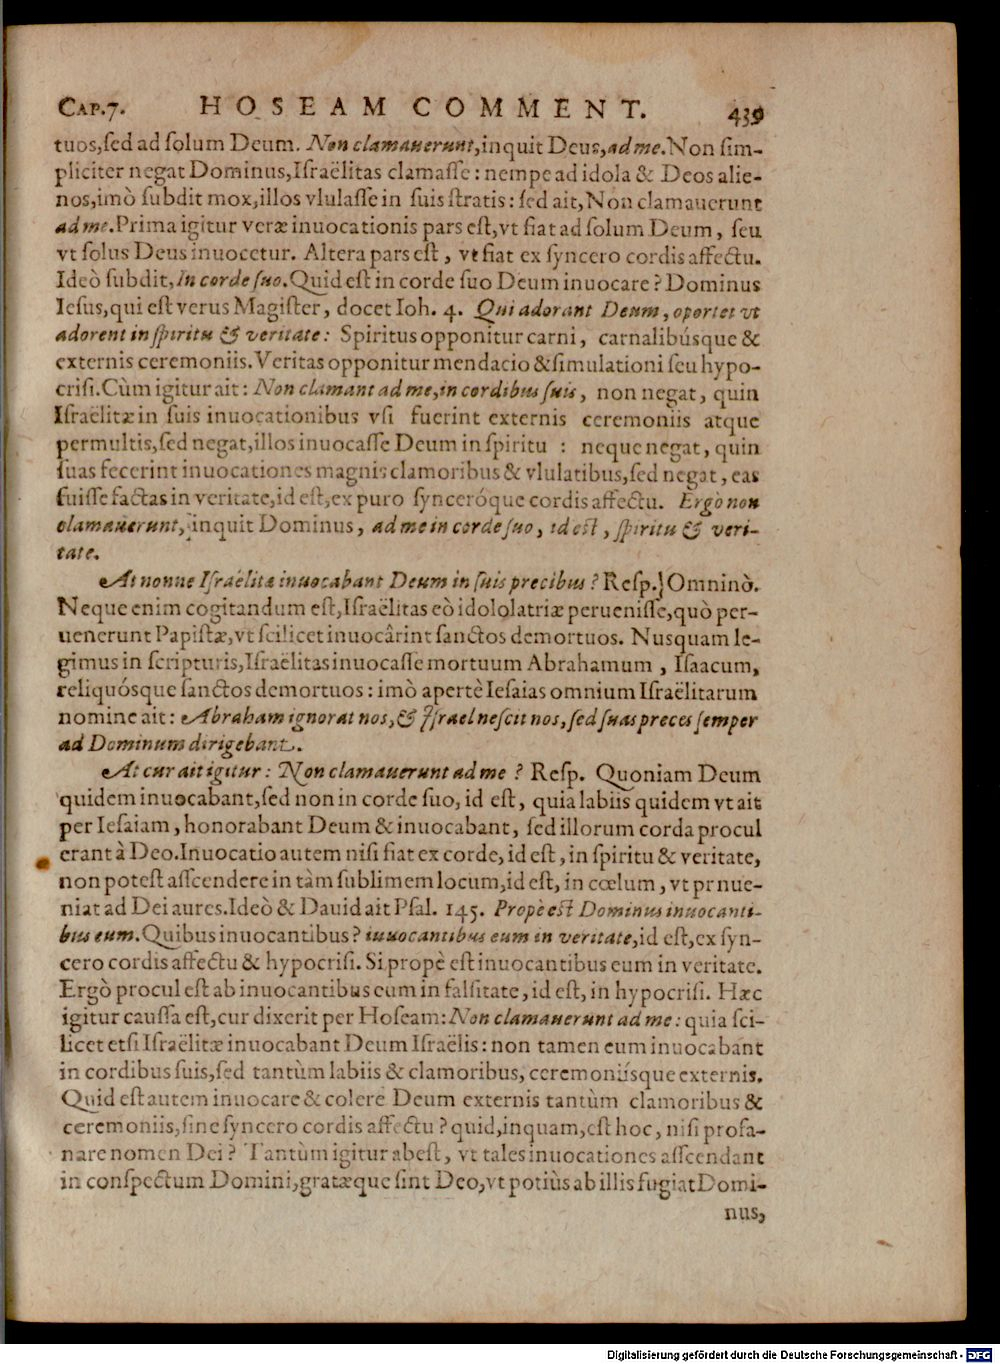 CAP.7. HOSEAM COMMENT. 439
tuos,ſed ad ſolum Deum. Non clamauerunt,inquit Deus,ad me.Non ſim-
pliciter negat Dominus,Iſraëlitas clamaſſe: nempe ad idola & Deos alie-
nos,imò ſubdit mox,illos vlulaſſe in ſuis ſtratis: ſed ait,Non clamauerunt
ad me.Prima igitur veræ inuocationis pars eſt,vt fiat ad ſolum Deum, ſeu
vt ſolus Deus inuocetur. Altera pars eſt, vt fiat ex ſyncero cordis affectu.
Ideò ſubdit,In corde ſuo.Quid eſt in corde ſuo Deum inuocare? Dominus
Ieſus,qui eſt verus Magiſter, docet Ioh. 4. Qui adorant Deum, oportet vt
adorent in ſpiritu & veritate: Spiritus opponitur carni, carnalibúsque &
externis ceremoniis.Veritas opponitur mendacio & ſimulationi ſeu hypo-
criſi.Cùm igitur ait: Non clamant ad me,in cordibus ſuis, non negat, quin
Iſraëlitæ in ſuis inuocationibus vſi fuerint externis ceremoniis atque
permultis,ſed negat,illos inuocaſſe Deum in ſpiritu : neque negat, quin
ſuas fecerint inuocationes magnis clamoribus & vlulatibus,ſed negat, eas
fuiſſe factas in veritate,id eſt,ex puro ſynceróque cordis affectu. Ergò non
clamauerunt, inquit Dominus, ad me in corde ſuo, id eſt, ſpiritu & veri-
tate.
At nonne Iſraëlitæ inuocabant Deum in ſuis precibus? Reſp.] Omninò.
Neque enim cogitandum eſt,Iſraëlitas eò idololatriæ perueniſſe,quò per-
uenerunt Papiſtæ,vt ſcilicet inuocârint ſanctos demortuos. Nusquam le-
gimus in ſcripturis,Iſraëlitas inuocaſſe mortuum Abrahamum, Iſaacum,
reliquósque ſanctos demortuos: imò apertè Ieſaias omnium Iſraëlitarum
nomine ait: Abraham ignorat nos,& Iſrael neſcit nos, ſed ſuas preces ſemper
ad Dominum dirigebant.
At cur ait igitur: Non clamauerunt ad me? Reſp. Quoniam Deum
quidem inuocabant,ſed non in corde ſuo, id eſt, quia labiis quidem vt ait
per Ieſaiam, honorabant Deum & inuocabant, ſed illorum corda procul
erant à Deo.Inuocatio autem niſi fiat ex corde, id eſt, in ſpiritu & veritate,
non poteſt aſſcendere in tàm ſublimem locum,id eſt, in cœlum, vt prnue-
niat ad Dei aures.Ideò & Dauid ait Pſal. 145. Propè eſt Dominus inuocanti-
bus eum.Quibus inuocantibus? inuocantibus eum in veritate,id eſt,ex ſyn-
cero cordis affectu & hypocriſi. Si propè eſt inuocantibus eum in veritate.
Ergò procul eſt ab inuocantibus eum in falſitate, id eſt, in hypocriſi. Hæc
igitur cauſſa eſt, cur dixerit per Hoſeam: Non clamauerunt ad me: quia ſci-
licet etſi Iſraëlitæ inuocabant Deum Iſraëlis: non tamen eum inuocabant
in cordibus ſuis,ſed tantùm labiis & clamoribus, ceremoniísque externis.
Quid eſt autem inuocare & colere Deum externis tantùm clamoribus &
ceremoniis,ſine ſyncero cordis affectu? quid,inquam,eſt hoc, niſi profa-
nare nomen Dei? Tantùm igitur abeſt, vt tales inuocationes aſſcendant
in conſpectum Domini,gratæque ſint Deo,vt potiùs ab illis fugiat Domi-
nus,
Digitalisierung gefördert durch die Deutsche Forschungsgemeinschaft - DFG